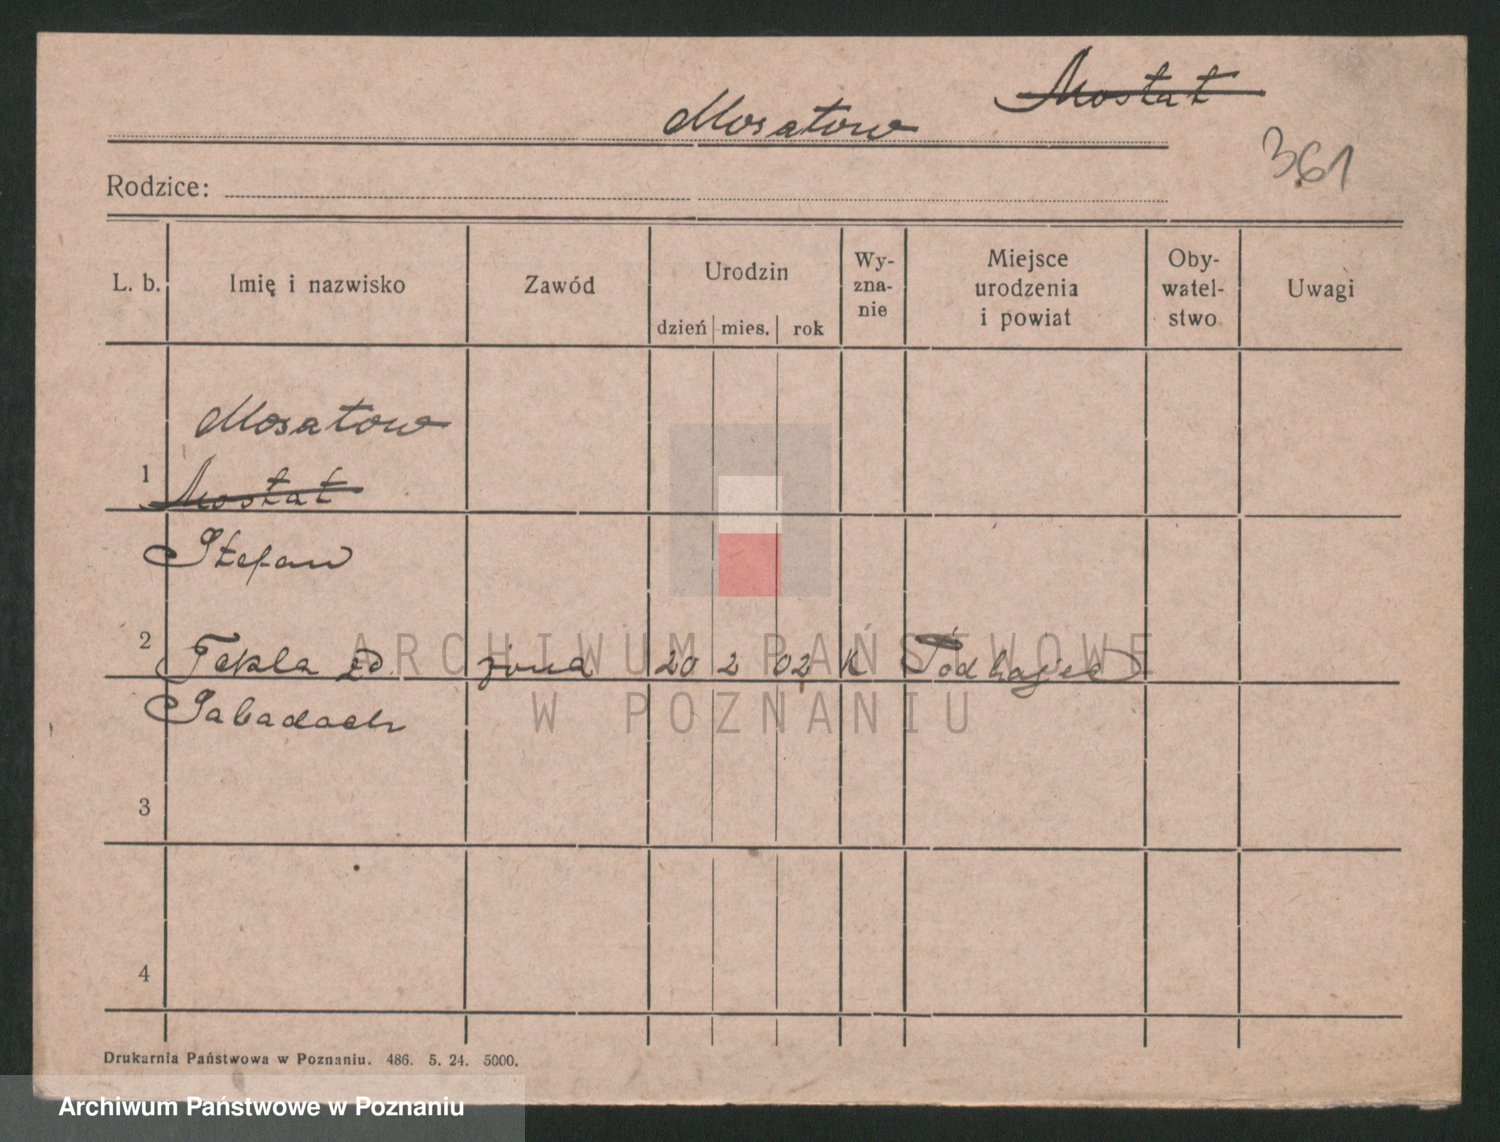 Mostat
Mosatow
361
Rodzice:
L. b. Imię i nazwisko Zawód Urodzin Wy-zna-nie Miejsce urodzenia i powiat Oby-watel-stwo Uwagi
dzień mies. rok
Mosatow
1 Mostat
Stefan
2 Tekla zd. żona 20 2 02 k Podhajce
Sabadach
3
4
Drukarnia Państwowa w Poznaniu. 486. 5. 24. 5000.
ARCHIWUM PAŃSTWOWE
W POZNANIU
Archiwum Państwowe w Poznaniu